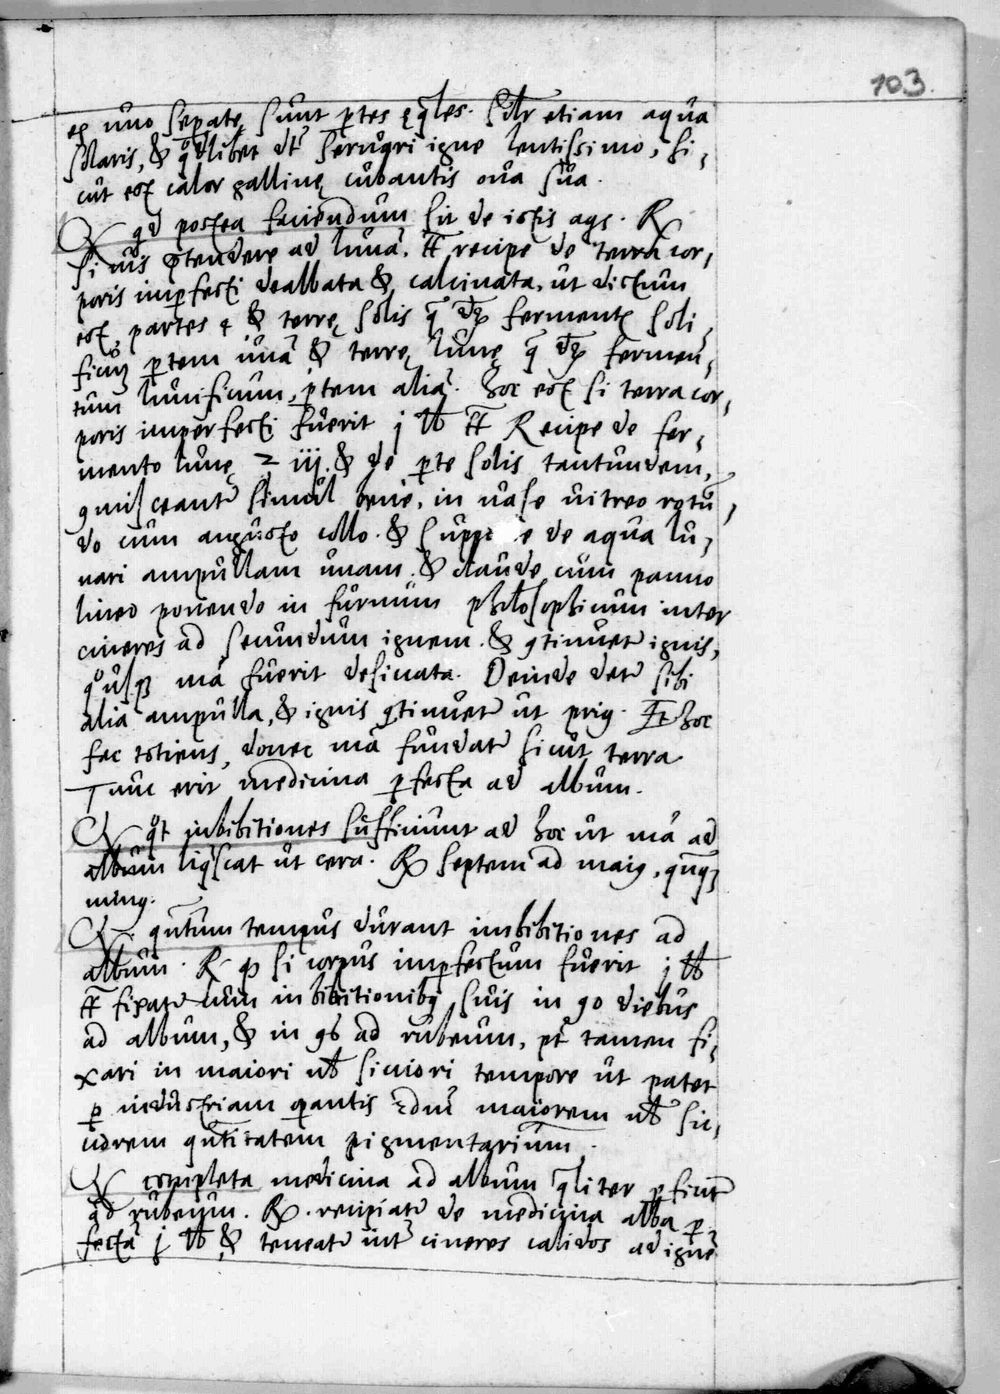 103.
eq̃ uno sepatę sunt ptes ęqles. Silr etiam aqua
solaris, & qdlibet dt seruari igne lentissimo, si-
cut est calor gallinę cubantis oua sua.
Q qd postea faciendum sit de istis aqs. R
si uis ptendere ad luna. tt recipe de terra cor-
poris imperfecti dealbata & calcinata, ut dictum
est, partes 4 & terrę solis q dr fermentũ soli-
ficũ ptem unã & terrę lunę q dr fermen-
tum lunificum, ptem aliã. hoc est si terra cor-
poris imperfecti fuerit j lb tt Recipe de fer-
mento lunę ℥ iij & de pte solis tantundem,
9misceantr simul bene, in uase uitreo rotũ-
do cum angusto collo. & supp e de aqua lu-
nari ampullam unam. & claude cum panno
lineo ponendo in furnum philosophicum inter
cineres ad secundum ignem. & 9tinuetr ignis,
qusq; mã fuerit desicata. Deinde detr sibi
alia ampulla, & ignis 9tinuetr ut prig. Et hoc
fac totiens, donec mã fundatr sicut terra
Tunc erit medicina pfecta ad album.
Q qt inbibitiones sufficiunt ad hoc ut mã ad
album liqscat ut cera. R septem ad maig, qnq;
ming.
Q. qntum tempus durant imbibitiones ad
album. R qp si corpus imperfectum fuerit j lb
tt fixatr cum inbibitionibq suis in 90 diebus
ad album, & in 96 ad rubeum, pt tamen fi-
xari in maiori ul' siniori tempore ut patet
p industriam opantis maiorem ul'
qntitatem pigmentarium.
Q completa medicina ad album qliter pficitr
ad rubeum. R. recipiatr de medicina alba p-
fectã j lb & teneatr int cineres calidos ad ignẽ